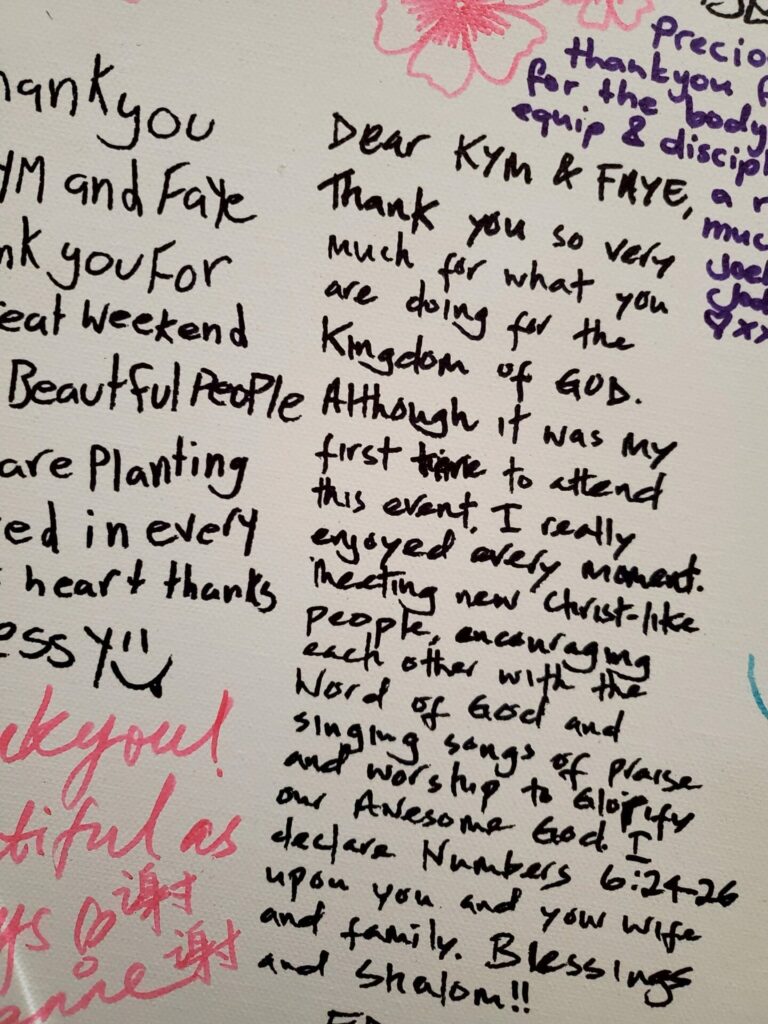 hankyou
YM and Faye
nk you For
eat Weekend
Beautful People
are Planting
ed in every
s heart thanks
ess Y
kyou!
tiful as
ys
谢谢
enne
Dear KYM & FAYE,
Thank you so very
much for what you
are doing for the
Kingdom of GOD.
Although it was my
first time to attend
this event, I really
enjoyed every moment.
Meeting new Christ-like
people, encouraging
each other with the
Word of God and
singing songs of praise
and worship to Glorify
our Awesome God. I
declare Numbers 6:24-26
upon you and your wife
and family. Blessings
and Shalom!!
Precio
thankyou f
for the body
equip & discipl
a r
muc
Joel
xx